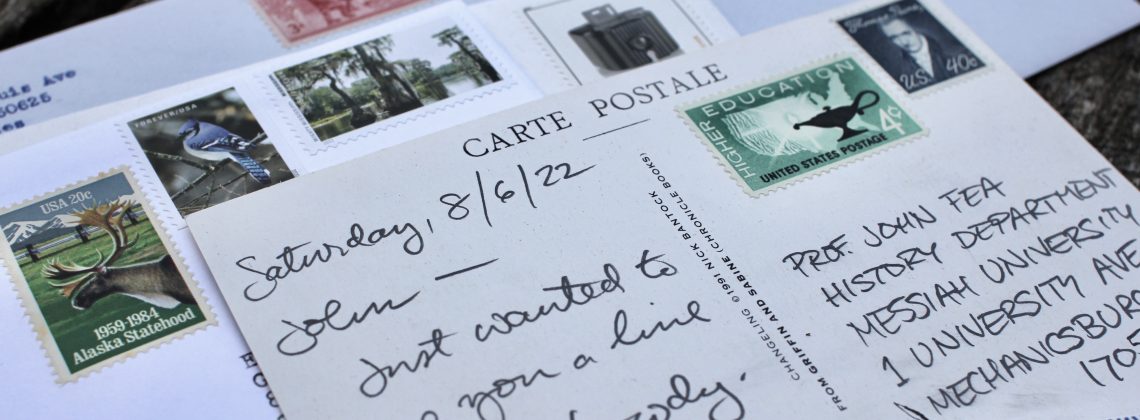 uis Ave
60625
es
FOREVER/USA
USA 20c
1959-1984
Alaska Statehood
CARTE POSTALE
Saturday, 8/6/22
John —
Just wanted to
you a line
CHANGELING ©1991 NICK BANTOCK
FROM GRIFFIN AND SABINE (CHRONICLE BOOKS)
HIGHER EDUCATION
4¢
UNITED STATES POSTAGE
U.S. 40c
PROF. JOHN FEA
HISTORY DEPARTMENT
MESSIAH UNIVERSITY
1 UNIVERSITY AVE
MECHANICSBUR
1705